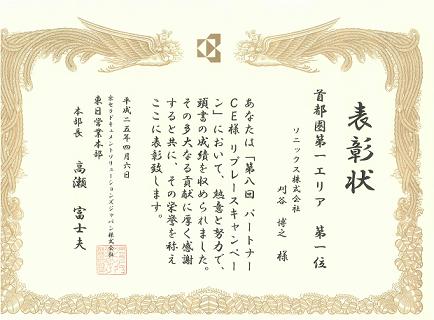 表彰状
首都圏第一エリア 第一位
ソニックス株式会社
刈谷 博之 様
あなたは「第八回 パートナー
CE様 リプレースキャンペー
ン」において、熱意と努力で、
頭書の成績を収められました。
その多大なる貢献に厚く感謝
すると共に、その栄誉を称え
ここに表彰致します。
平成二五年四月六日
京セラドキュメントソリューションズジャパン株式会社
東日営業本部
本部長 高瀬 富士夫